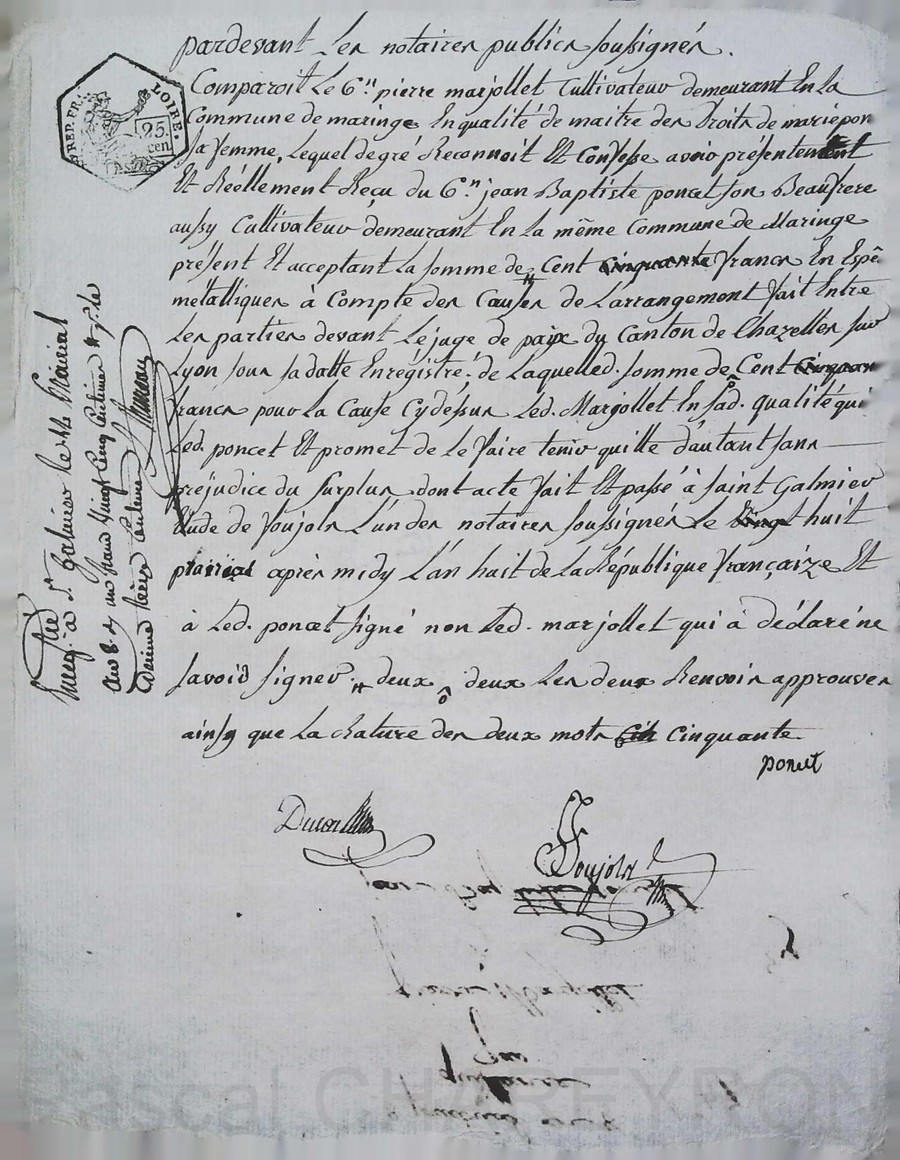 pardevant Les notaires publics soussignés.
Comparoit Le C.en pierre marjollet Cultivateur demeurant En la
Commune de maringe En qualité de maitre des Droits de marie pon
sa femme, Lequel de gré Reconnoit Et Confesse avoir présentement
Et Réellement Reçu du C.en jean Baptiste poncet son Beaufrere
aussy Cultivateur demeurant En La même Commune de Maringe
présent Et acceptant La somme de Cent cinquante francs En Espê
métalliques à Compte des Causes de L'arrangement fait Entre
Les parties devant Le juge de paix du Canton de Chazelles sur
Lyon sous sa datte Enrégistré; de Laquelle d. somme de Cent Cinquan
francs pour La Cause Cydéssus Led. Marjollet En sad. qualité qui
Led. poncet Et promet de Le faire tenir quitte d'autant sans
préjudice du surplus dont acte fait Et passé à Saint Galmier
Etude de Soujols L'un des notaires soussignés Le vingt huit
prairial après midy L'an huit de La République françaize Et
à Led. poncet signé non Led. marjollet qui à déclaré ne
savoir signer. deux deux Les deux Renvois approuvés
ainsy que La rature des deux mots cin cinquante.
poncet
Soujols
REP. FR.
LOIRE.
25.
cen.
Enreg. à St Galmier le 28 Prairial
an 8. un franc vingt cinq centimes